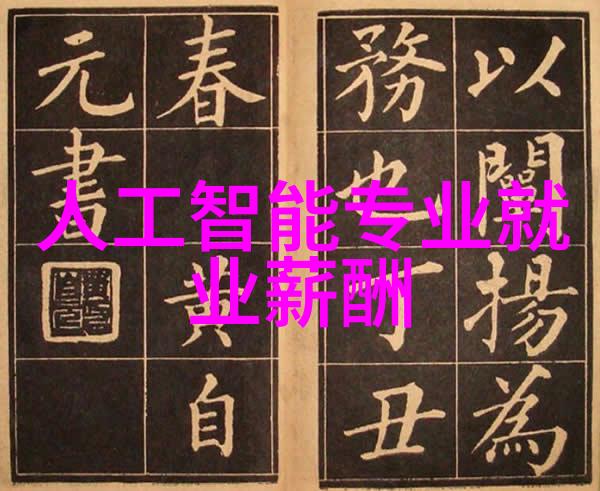 人工智能专业就
业薪酬
以闡揚為
務也丁丑
春黃自
元書